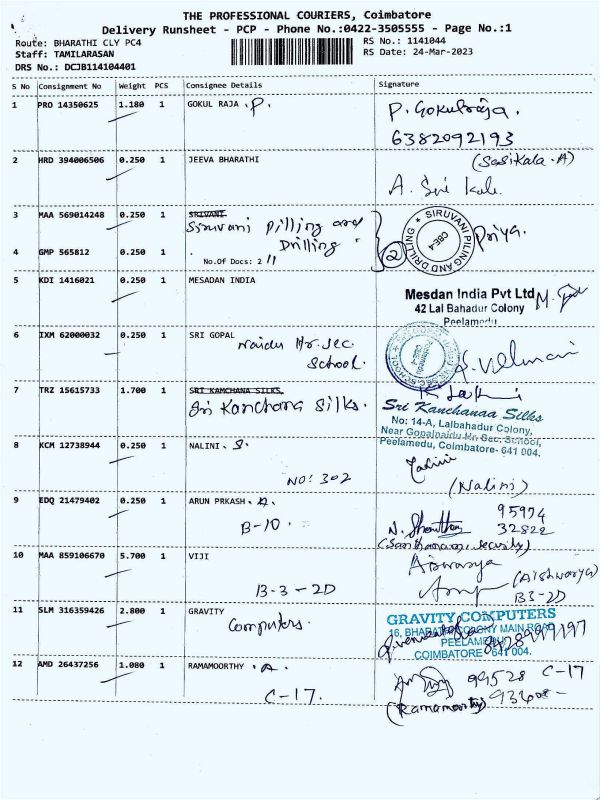 THE PROFESSIONAL COURIERS, Coimbatore
Delivery Runsheet - PCP - Phone No.:0422-3505555 - Page No.:1
Route: BHARATHI CLY PC4
RS No.: 1141044
Staff: TAMILARASAN
RS Date: 24-Mar-2023
DRS No.: DCJB114104401
S No Consignment No Weight PCS Consignee Details Signature
1 PRO 14350625 1.180 1 GOKUL RAJA .P. P. Gokulraja.
6382092193
2 HRD 394006506 0.250 1 JEEVA BHARATHI (Sasikala.A)
A. Sri kala
3 MAA 569014248 0.250 1 SRIVANI
Siruvani Pilling and
Drilling
SIRUVANI PILING AND DRILLING
CBE4
Priya.
2
4 GMP 565812 0.250 1
No.Of Docs: 2
5 KDI 1416021 0.250 1 MESADAN INDIA
Mesdan India Pvt Ltd
42 Lal Bahadur Colony
Peelamedu
6 IXM 62000032 0.250 1 SRI GOPAL
Naidu Hr.Sec
School.
7 TRZ 15615733 1.700 1 SRI KAMCHANA SILKS
Sri Kanchana Silks.
Sri Kanchanaa Silks
No: 14-A, Lalbahadur Colony,
Near Gopalnaidu Hr. Sec. School,
Peelamedu, Coimbatore- 641 004.
8 KCM 12738944 0.250 1 NALINI . S.
NO: 302
Nalini
(Nalini)
9 EDQ 21479402 0.250 1 ARUN PRKASH
B-10.
95974
32822
10 MAA 859106670 5.700 1 VIJI
B-3-2D
Aiswarya
(Aishwarya)
B3-2D
11 SLM 316359426 2.800 1 GRAVITY
Computers.
GRAVITY COMPUTERS
16, BHARATHI COLONY MAIN ROAD
PEELAMEDU
COIMBATORE - 641 004.
12 AMD 26437256 1.080 1 RAMAMOORTHY . A.
C-17.
99528 C-17
(Ramamoorthy)